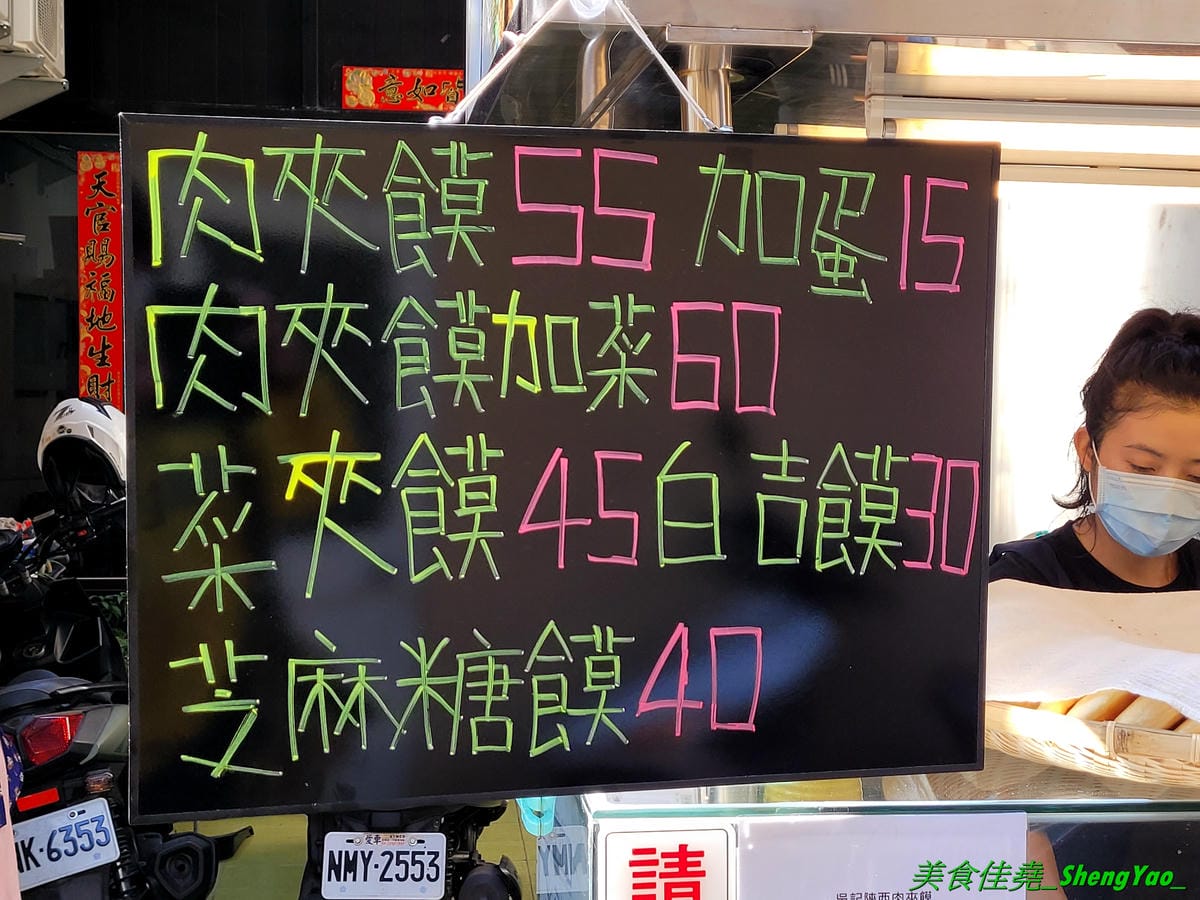 意如
天官賜福地生財
肉夾饃55 加蛋15
肉夾饃加菜60
菜夾饃45 白吉饃30
芝麻糖饃40
NK-6353
NMY-2553
請
吳記陝西肉夾饃
美食佳堯_ShengYao_